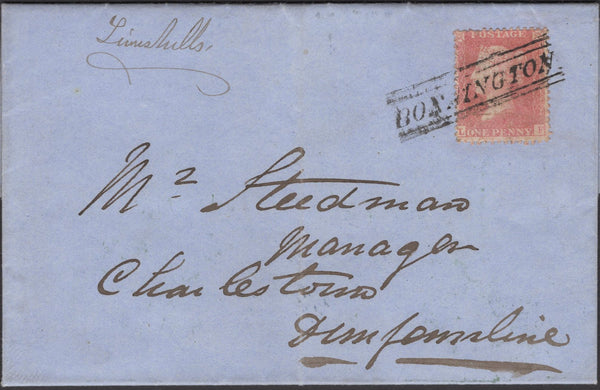 Limekills.
POSTAGE
BONNINGTON
ONE PENNY
Mr Steedman
Manager
Charlestown
Dunfermline